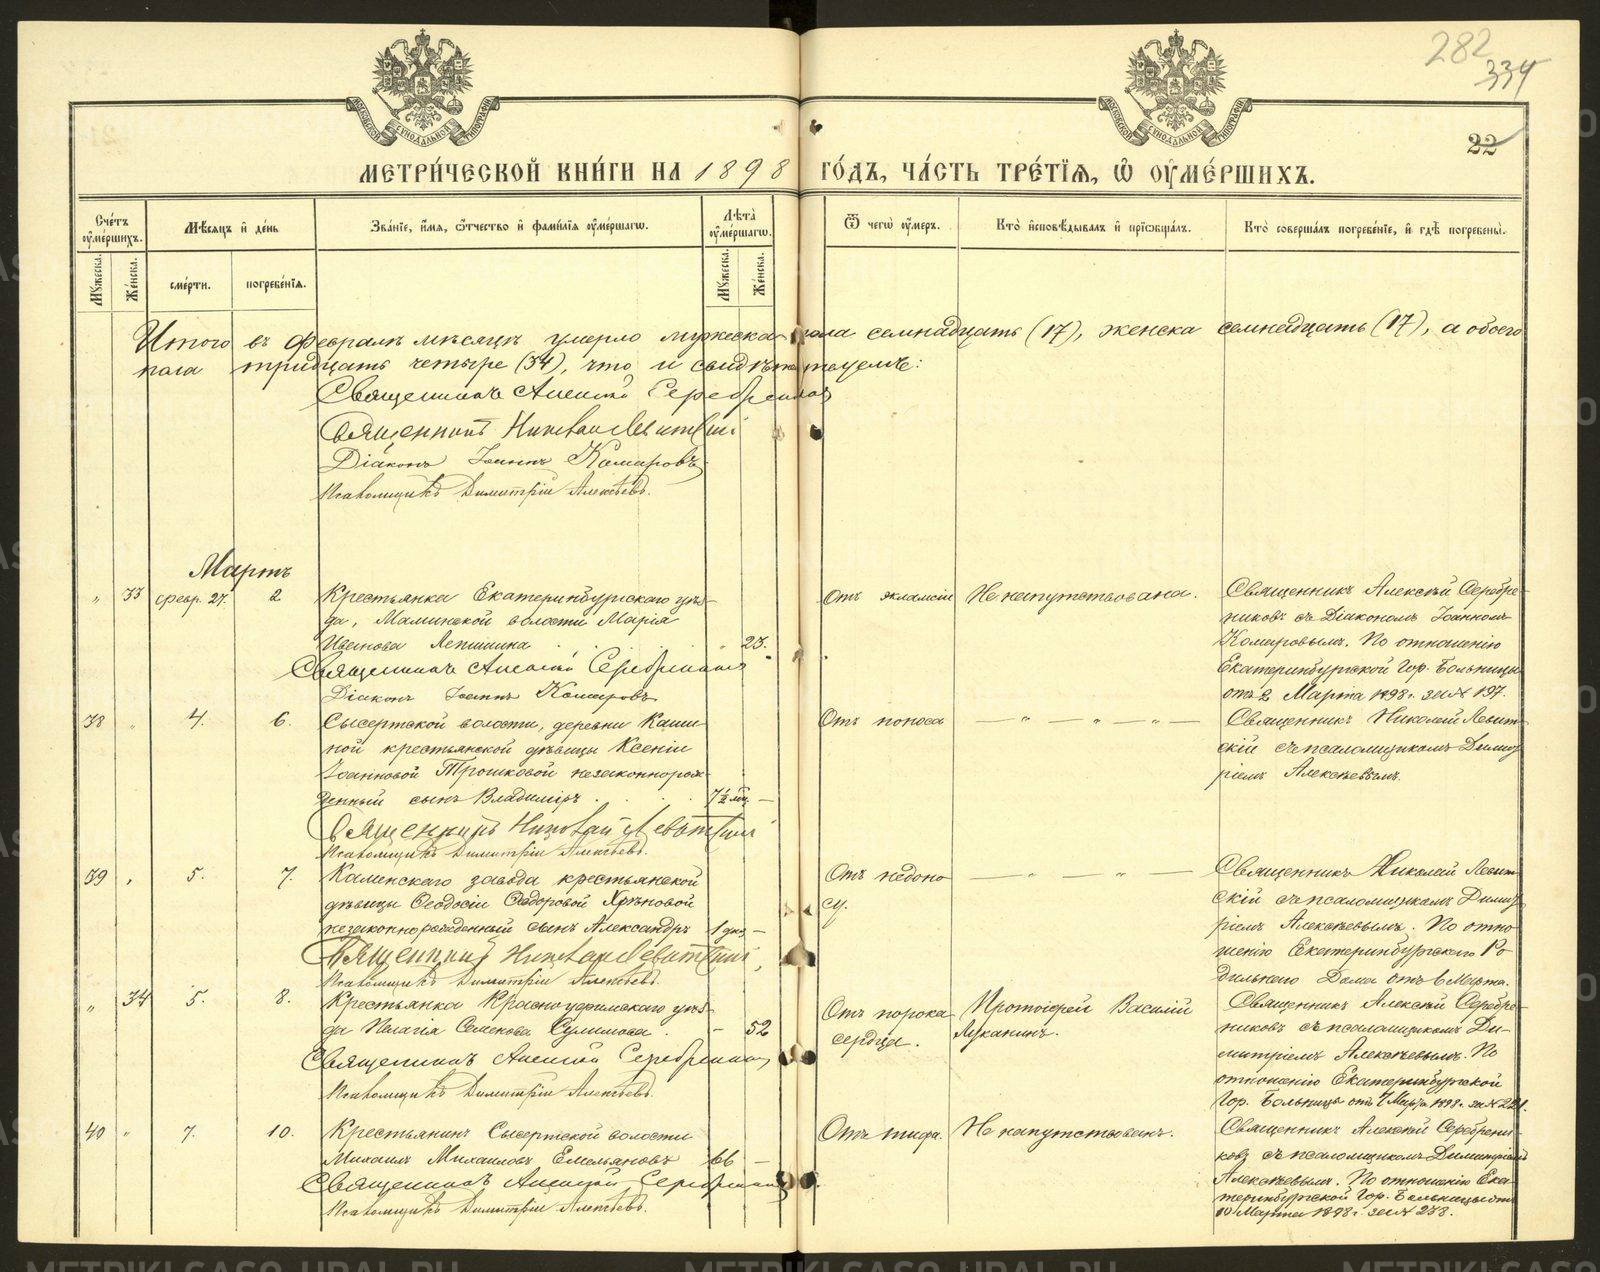 282
334
22
МЕТРИ́ЧЕСКОЙ КНИ́ГИ НА 1898 ГО́ДЪ, ЧА́СТЬ ТРЕ́ТІѦ, Ѿ ОУ҆МЕ́РШИХЪ.
Сче́тъ оу҆ме́ршихъ.
Мѣ́сѧцъ и҆ де́нь
Зва́нїе, и҆́мѧ, ѻ҆́тчество и҆ фами́лїѧ оу҆ме́ршагѡ.
Лѣ́та оу҆ме́ршагѡ.
Ѿ чегѡ̀ оу҆́меръ.
Кто̀ и҆сповѣ́дывалъ и҆ прїѡбща́лъ.
Кто̀ соверша́лъ погребе́нїе, и҆ гдѣ̀ погребены̀.
Мꙋ́жеска.
Же́нска.
сме́рти.
погребе́нїѧ.
Мꙋ́жеска.
Же́нска.
Итого въ Февралѣ мѣсяцѣ умерло мужеска пола семнадцать (17), женска семнадцать (17), а обоего
пола тридцать четыре (34), что и свидѣтельствуемъ:
Священникъ Алексій Серебренниковъ
Священникъ Николай Левитскій
Діаконъ Іоаннъ Комаровъ
Псаломщикъ Димитрій Алексѣевъ.
Мартъ
„ 33 февр. 27. 2 Крестьянка Екатеринбургскаго уѣз-
да, Маминской волости Марія
Иванова Лепшина „ 23.
Священникъ Алексій Серебренниковъ
Діаконъ Іоаннъ Комаровъ
Отъ эклампсіи
Не напутствована.
Священникъ Алексѣй Серебре-
никовъ съ Діакономъ Іоанномъ
Комаровымъ. По отношенію
Екатеринбургской Гор. Больницы
отъ 2 Марта 1898 г. за № 197.
38 „ 4. 6. Сысертской волости, деревни Каши-
ной крестьянской дѣвицы Ксеніи
Іоанновой Трошковой незаконнорож-
денный сынъ Владиміръ 7½ мѣс. —
Священникъ Николай Левитскій
Псаломщикъ Димитрій Алексѣевъ.
Отъ поноса
— „ — „ — „ —
Священникъ Николай Левит-
скій съ псаломщикомъ Димит-
ріемъ Алексѣевымъ.
39 „ 5. 7. Каменскаго завода крестьянской
дѣвицы Ѳеодосіи Ѳедоровой Хрѣновой
незаконнорожденный сынъ Александръ 1 дня —
Священникъ Николай Левитскій
Псаломщикъ Димитрій Алексѣевъ.
Отъ недоно-
су.
— „ — „ —
Священникъ Николай Левит-
скій съ псаломщикомъ Димит-
ріемъ Алексѣевымъ. По отно-
шенію Екатеринбургскаго Ро-
дильнаго Дома отъ 6 Марта.
„ 34 5. 8. Крестьянка Красноуфимскаго уѣз-
да Пелагія Семенова Сулимова — 52
Священникъ Алексій Серебренниковъ
Псаломщикъ Димитрій Алексѣевъ.
Отъ порока
сердца.
Протоіерей Василій
Луканинъ.
Священникъ Алексѣй Серебре-
никовъ съ псаломщикомъ Ди-
митріемъ Алексѣевымъ. По
отношенію Екатеринбургской
Гор. Больницы отъ 7 Марта 1898 г. за № 221.
40 „ 7. 10. Крестьянинъ Сысертской волости
Михаилъ Михаиловъ Емельяновъ 66 —
Священникъ Алексій Серебренниковъ
Псаломщикъ Димитрій Алексѣевъ.
Отъ тифа.
Не напутствованъ.
Священникъ Алексѣй Серебрени-
ковъ съ псаломщикомъ Димитріемъ
Алексѣевымъ. По отношенію Ека-
теринбургской Гор. Больницы отъ
10 Марта 1898 г. за № 238.
METRIKI.GASO-URAL.RU